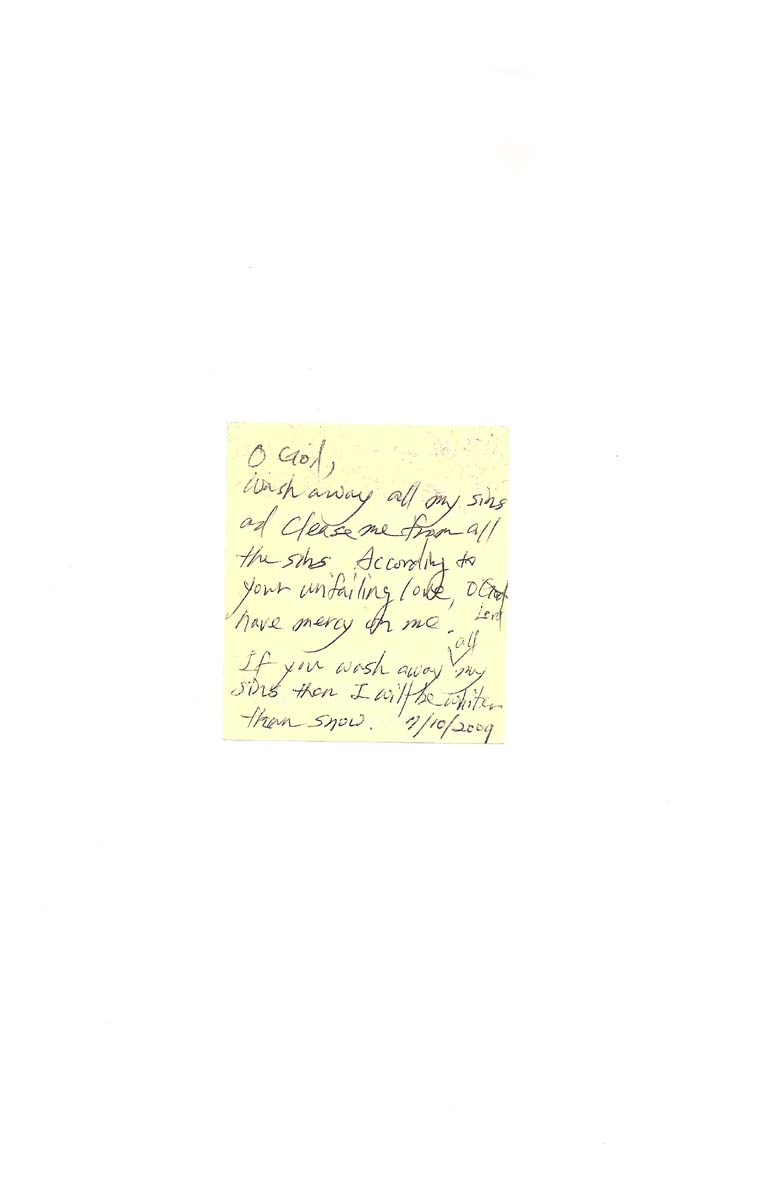 O God,
Wash away all my sins
ad Clease me from all
the sins. According to
your unfailing love, O God
Lord
have mercy on me.
all
If you wash away my
sins then I will be whiter
than snow. 7/10/2009